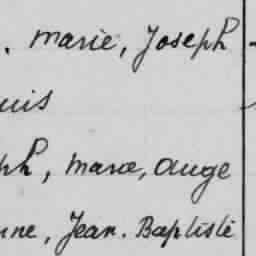 . Marie, Joseph
uis
ph, Marie, Ange
nne, Jean. Baptiste